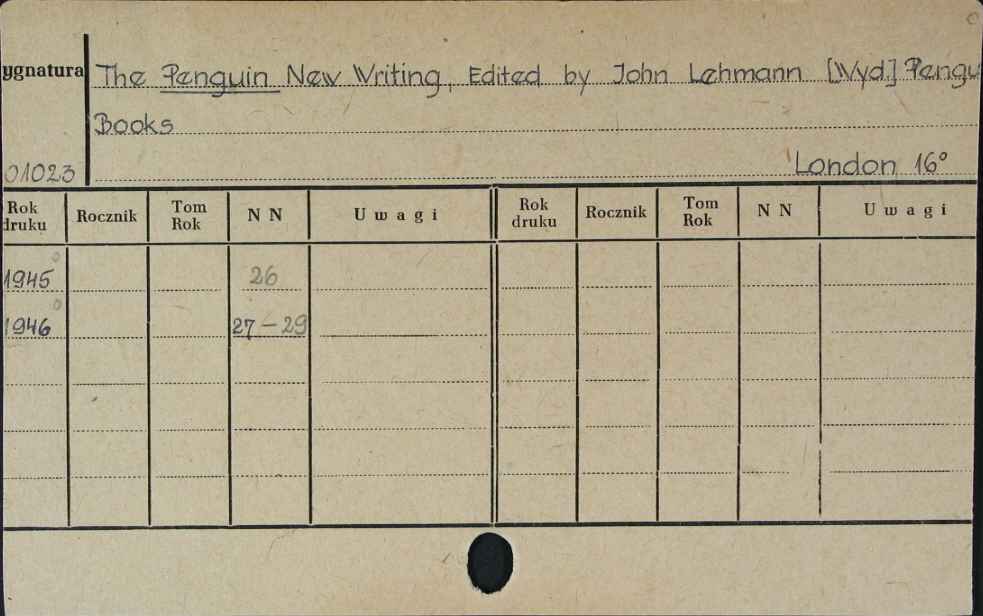 ygnatura The Penguin New Writing, Edited by John Lehmann [Wyd.] Pengu
Books
01023 London 16°
Rok druku Rocznik Tom Rok N N Uwagi Rok druku Rocznik Tom Rok N N Uwagi
1945 26
1946 27-29